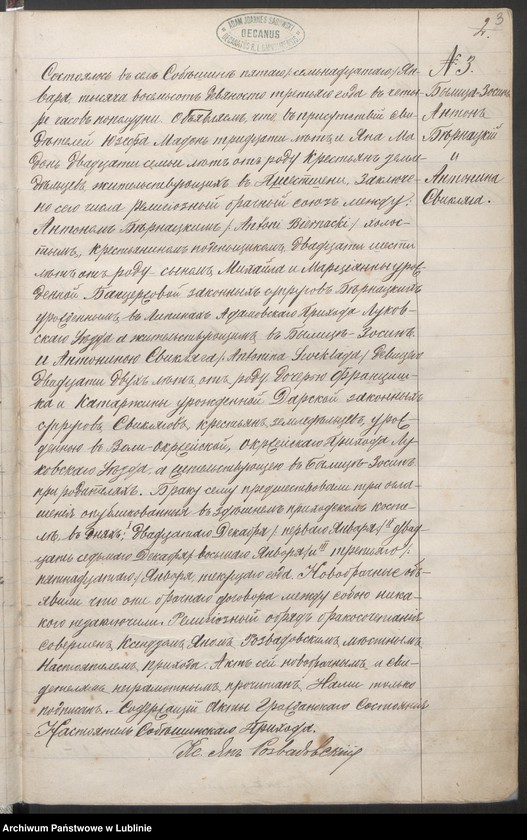 3
2.
ADAM JOANNES SADOWSKI
DECANUS
№ 3.
Былица-Зосинъ
Антонъ
Бѣрнацкій
и
Антонина
Свикляга.
Состоялось въ селѣ Собѣшинѣ пятаго/ семьнадцатаго/ Ян-
варя тысяча восемьсотъ девяносто третьяго года въ четы-
ре часовъ пополудни. Объявляемъ, что въ присутствіи сви-
дѣтелей Юзефа Мадонь тридцати лѣтъ и Яна Ма-
донь двадцати семи лѣтъ отъ роду крестьянъ земле-
дѣльцевъ жительствующихъ въ заключе-
но сего числа религіозный брачный союзъ между:
Антономъ Бѣрнацкимъ / Antoni Biernacki / холос-
тымъ, крестьяниномъ поденщикомъ двадцати шести
лѣтъ отъ роду сыномъ Михаила и Марціанны урож-
денной законныхъ супруговъ Бѣрнацкихъ
урожденнымъ въ Адамовскаго Прихода Луков-
скаго Уѣзда а жительствующимъ въ Былицѣ-Зосинъ
и Антониною Свикляга / Antonina Świkląga / девицею
двадцати двухъ лѣтъ отъ роду дочерью Францишка
и Катаржины урожденной Дарской законныхъ
супруговъ Свиклягъ, крестьянъ земледѣльцевъ, урож-
денною въ Воли-Окрейской, Окрейскаго Прихода Лу-
ковскаго Уѣзда, а жительствующею въ Былицѣ-Зосинъ
при родителяхъ. Браку сему предшествовали три огла-
шенія опубликованныя въ здѣшнемъ приходскомъ косте-
лѣ въ дняхъ: двадцатаго Декабря / перваго Января / двад-
цать седьмаго Декабря / восьмаго Января / и третьяго /
пятнадцатаго / Января текущаго года. Новобрачные объ-
явили что они брачнаго договора между собою ника-
кого незаключили. Религіозный обрядъ бракосочетанія
совершенъ Ксендзомъ Яномъ Розвадовскимъ мѣстнымъ
Настоятелемъ прихода. Актъ сей новобрачнымъ и сви-
детелямъ неграмотнымъ прочитанъ, Нами только
подписанъ. Содержащій Акты Гражданскаго Состоянія
Настоятель Собѣшинскаго Прихода.
Кс. Янъ Розвадовскій